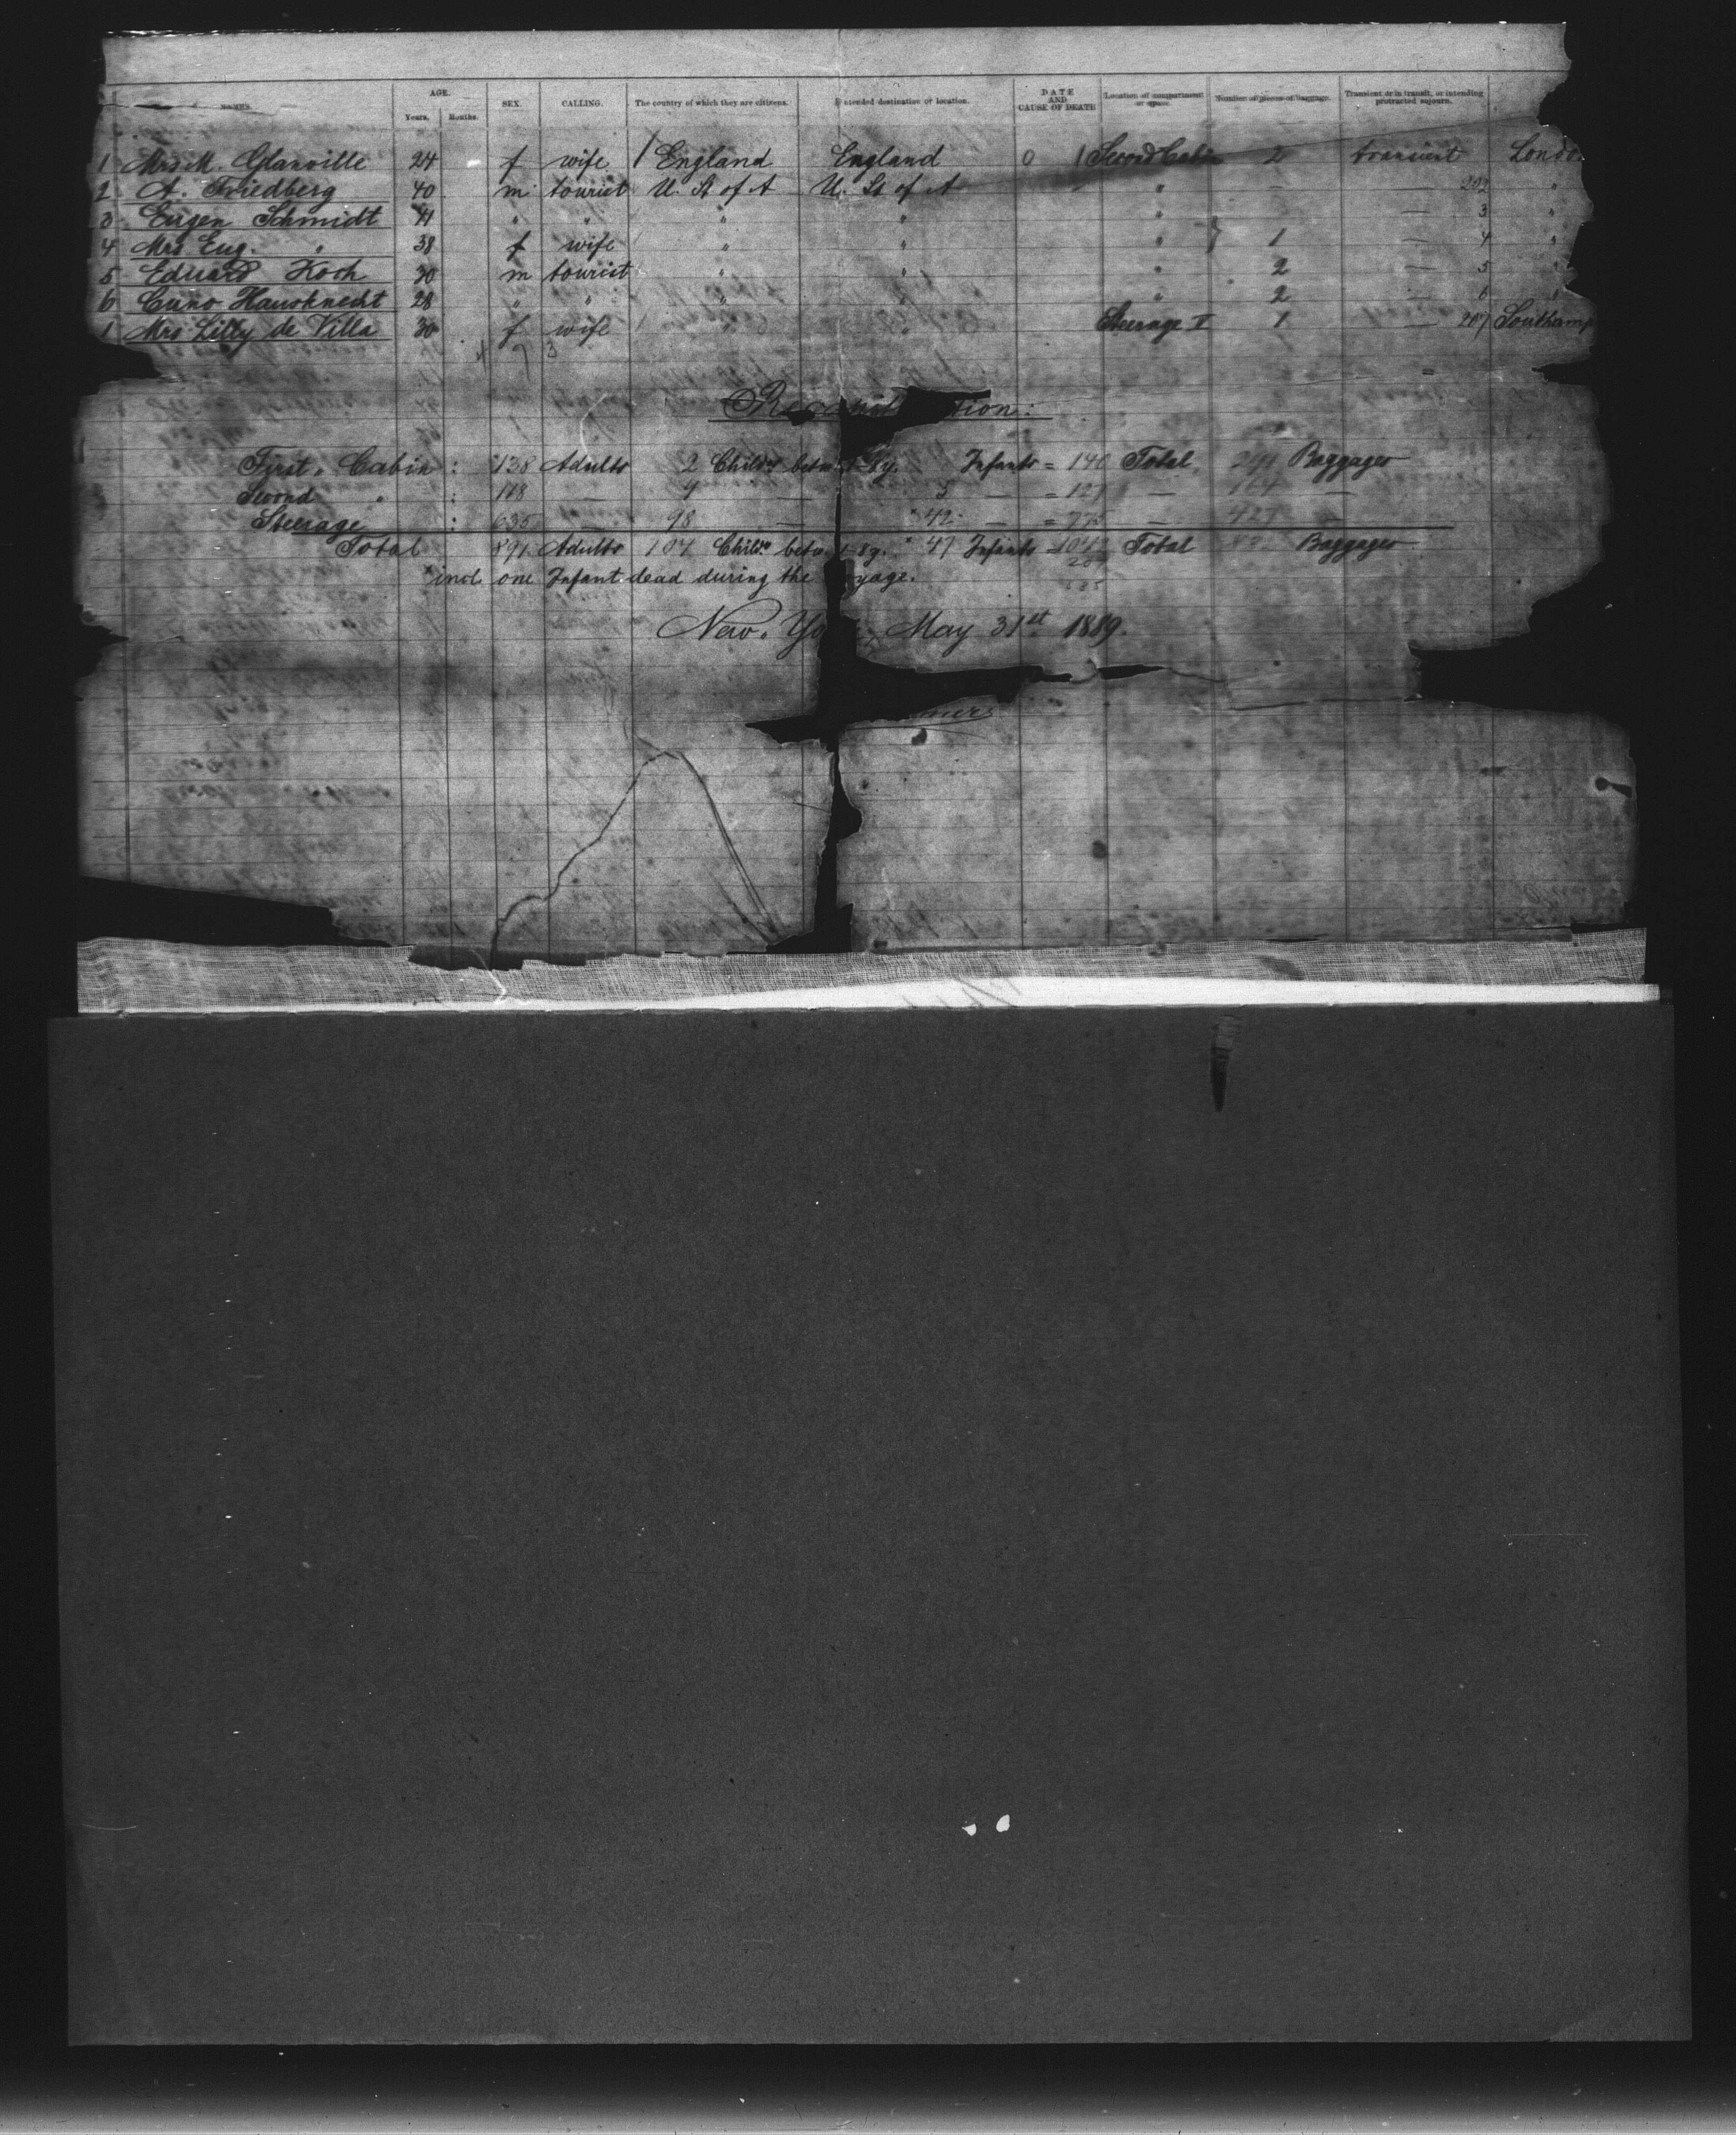 NAMES. AGE. Years. Months. SEX. CALLING. The country of which they are citizens. Intended destination or location. DATE AND CAUSE OF DEATH Location of compartment or space. Number of pieces of baggage. Transient or in transit, or intending protracted sojourn.
1 Mrs M. Glanville 24 f wife England England 0 Second Cabin 2 transient Londo
2 A. Friedberg 40 m tourist U. St of A U. St of A " — — 202 "
3 Eugen Schmidt 41 " " " " " — 3 "
4 Mrs Eug. " 38 f wife " " " } 1 — 4 "
5 Eduard Koch 30 m tourist " " " 2 — 5 "
6 Cuno Hausknecht 28 " " " " " 2 — 6 "
1 Mrs Lilly de Villa 30 f wife " " Steerage V 1 — 207 Southamp
4 9 3
tion:
First " Cabin : 138 Adults 2 Child. betw. 1-8y. Infants = 140 Total Baggages
Second " : 118 — 4 — 5 — = 127 — —
Steerage : 635 — 98 — * 42 — = 775 — 427 —
Total 891 Adults 104 Child. betw. 1-8y. * 47 Infants = 1042 Total Baggages
* incl. one Infant dead during the yage.
New Yo May 31st 1889.